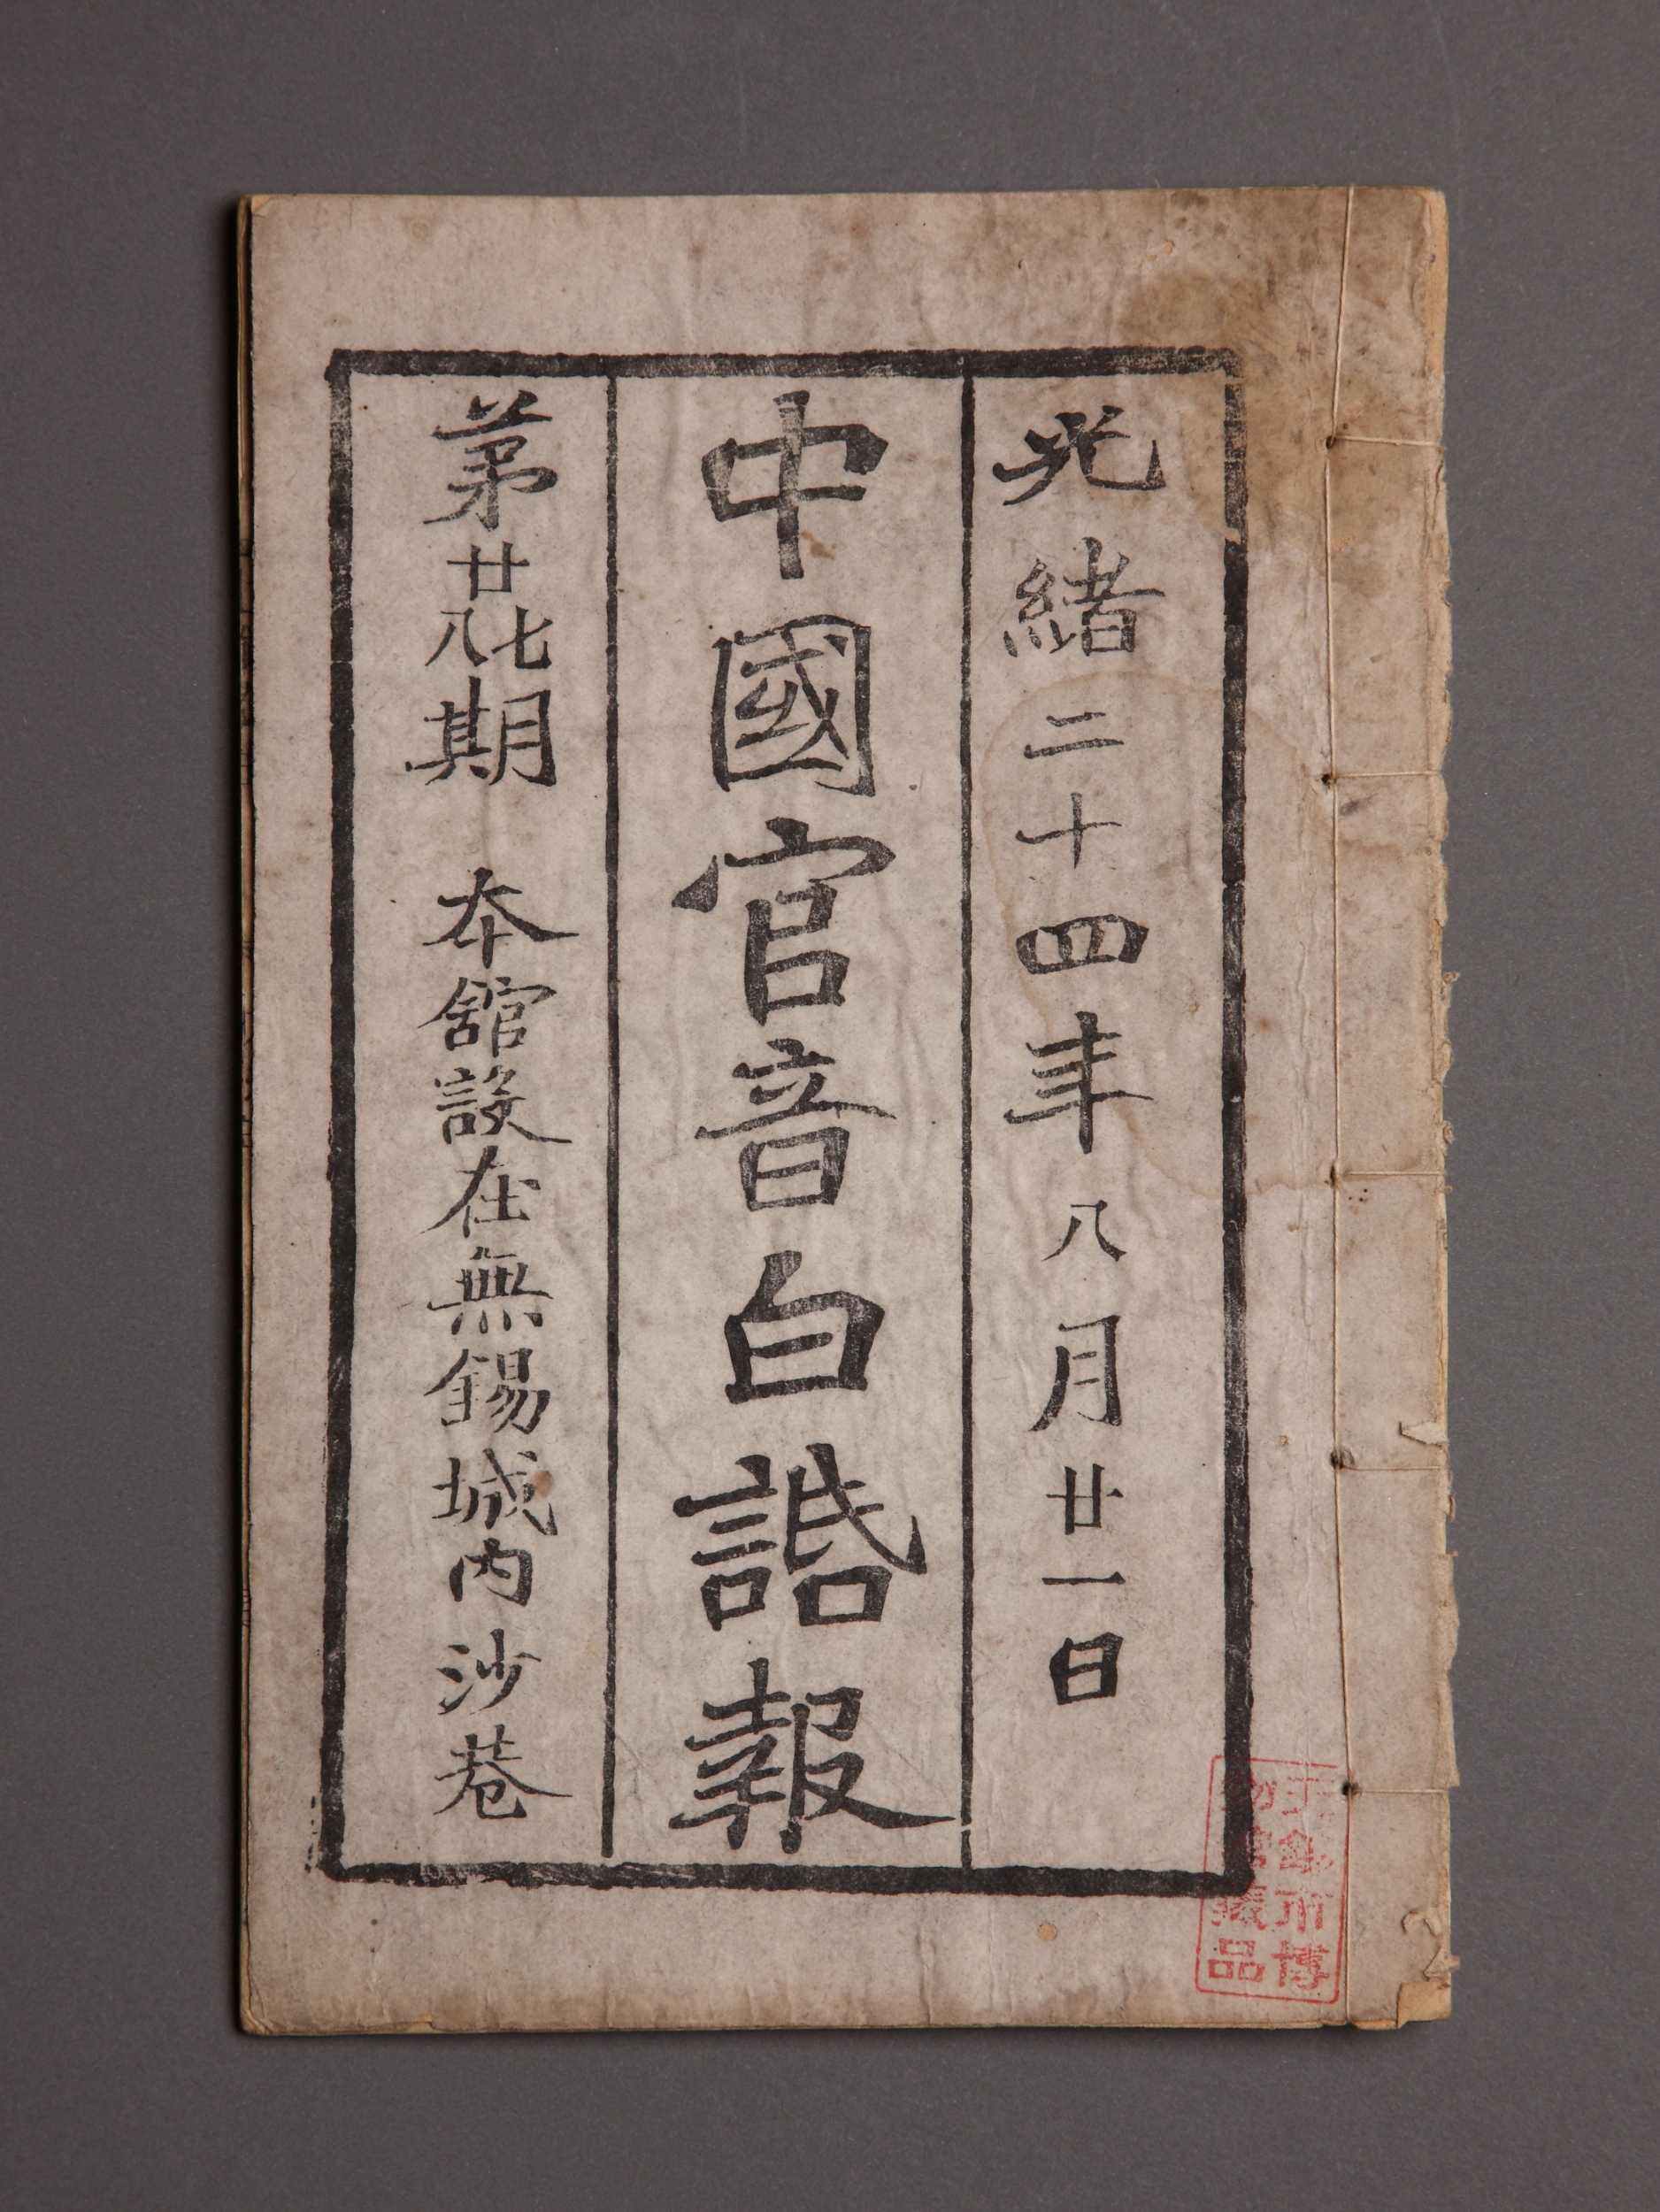 光緒二十四年八月廿一日
中國官音白話報
苐廿七八期 本舘設在無錫城內沙巷
无錫市博
物館藏品